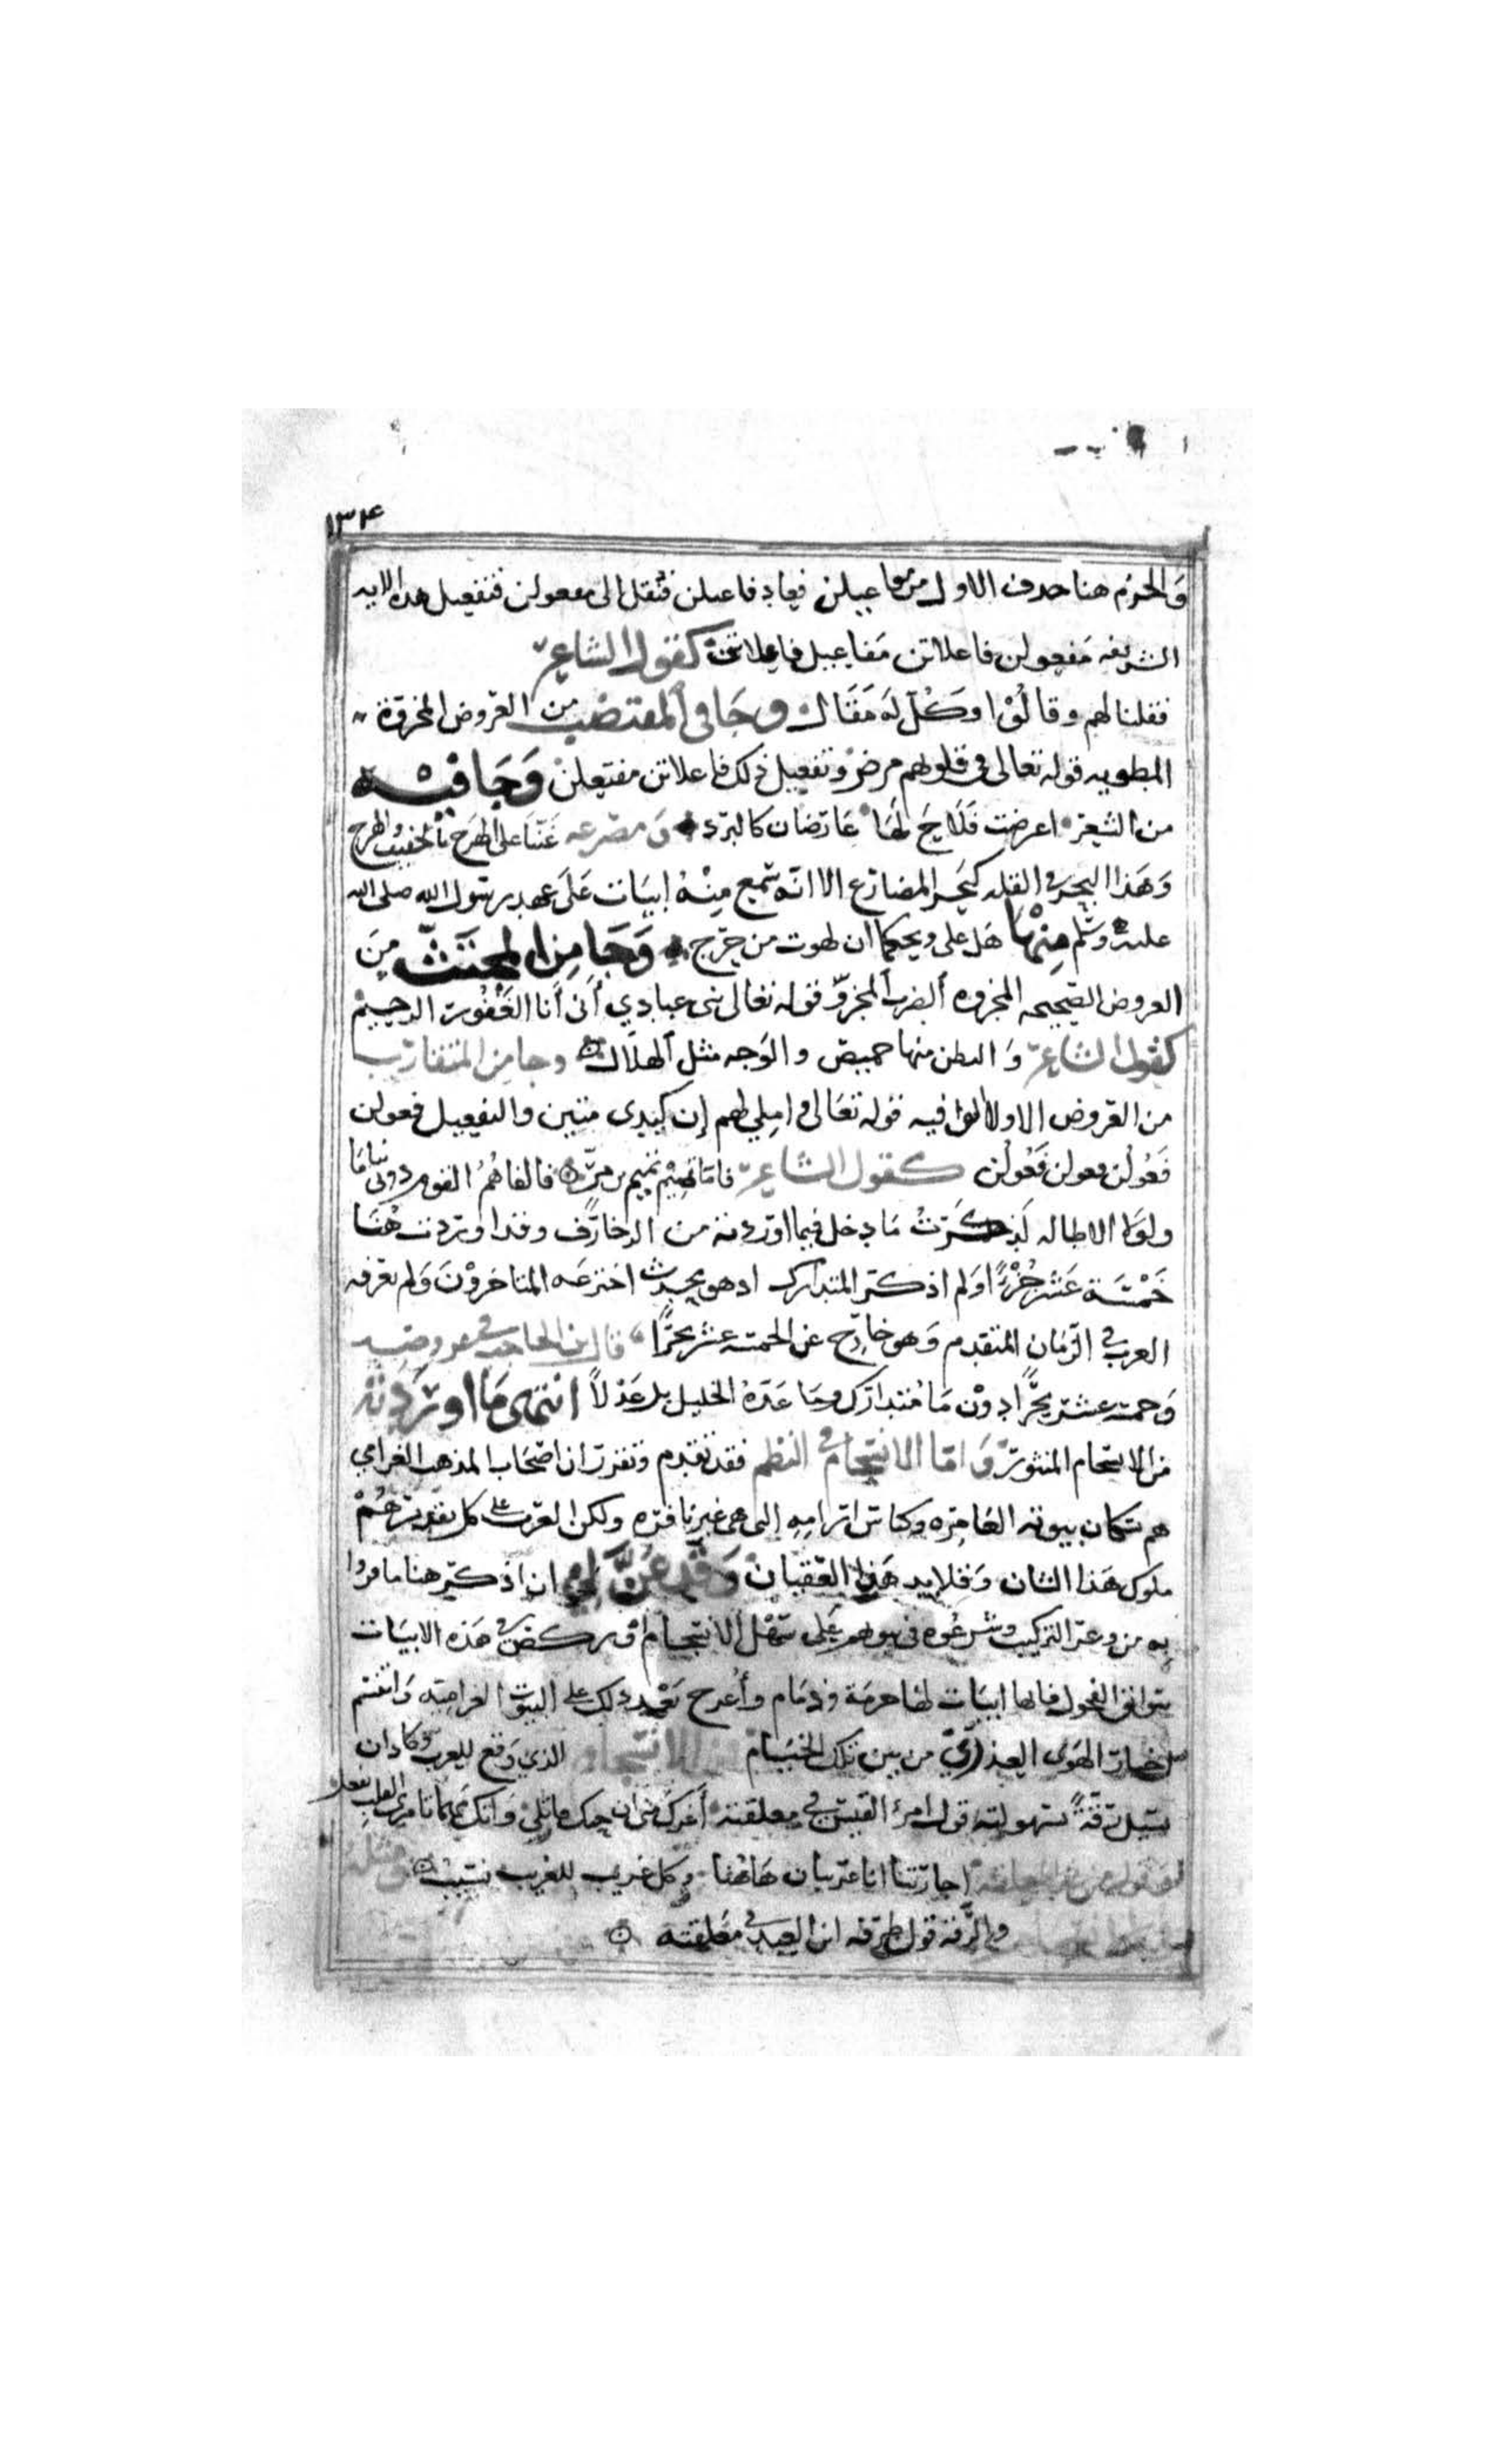 ١٣٤
والخرم هنا حدف الاول من مفاعيلن فيعاد فاعيلن فتنقل الى مفعولن فتفعيل هده الايه
الشريفه مفعولن فاعلاتن مفاعيل فاعلاتن كقول الشاعر
فقلنا لهم وقالوا وكل له مقال وجا في المقتضب من العروض المجزوة
المطويه قوله تعالى في قلوبهم مرض وتفعيل ذلك فاعلاتن مفتعلن وجا فيه
من الشعر اعرضت فلاح لها عارضان كالبرد
وهذا البحر في القله كبحر المضارع الا انه سمع منه ابيات على عهد رسول الله صلى الله
عليه وسلم منها هل على ويحكما ان لهوت من حرج وجا من المجتث من
العروض الصحيحه المجزوه الضرب المجزو قوله تعالى نبى عبادي أنى أنا الغفور الرحيم
كقول الشاعر والبطن منها خميص والوجه مثل الهلال وجا من المتقارب
من العروض الاولى الوافيه قوله تعالى واملي لهم إن كيدى متين والتفعيل فعولن
فعولن فعولن فعولن كقول الشاعر فاما تميم تميم بن مر فالفاهم القوم روبى نياما
ولولا الاطاله لذكرت ما دخل فيما اوردته من الزحارف وقد اوردت هنا
خمسة عشر بحرا ولم اذكر المتدارك اد هو بحر محدث اخترعه المتاخرون ولم تعرفه
العرب في الزمان المتقدم وهو خارج عن الخمسه عشر بحرا قال ابن الحاجب في عروضه
وخمسه عشر بحرا دون ما متدارك وما عده الخليل بل عدلا انتهى ما اوردته
من الانسجام المنثور واما الانسجام في النظم فقد تقدم وتقرر ان اصحاب المذهب الغرامي
هم سكان بيوته العامره وكناس ارامه التى هى غير نافره ولكن العرب على كل تقدير هم
ملوك هذا الشان وقلايد هذا العقيان وقد عن لي ان اذكر هنا ما فروا
به من وعر التركيب وشرعوه في بيوتهم على سهل الانسجام اركض في هذه الابيات
سوابق الفحول فانها ابيات لها حرمة وذمام وأعرج بعد ذلك على البيوت الغراميه وانتسم
اخبار الهوى العذري من بين تلك الخيام فمن الانسجام الذي وقع للعرب وكاد ان
يسيل رقة لسهولته قول امرء القيس في معلقته أغرك منى ان حبك قاتلي وانك مهما تامرى القلب يفعل
اجارتنا انا غريبان هاهنا وكل غريب للغريب نسيب ومثله
والرقة قول طرفه ابن العبد في معلقته